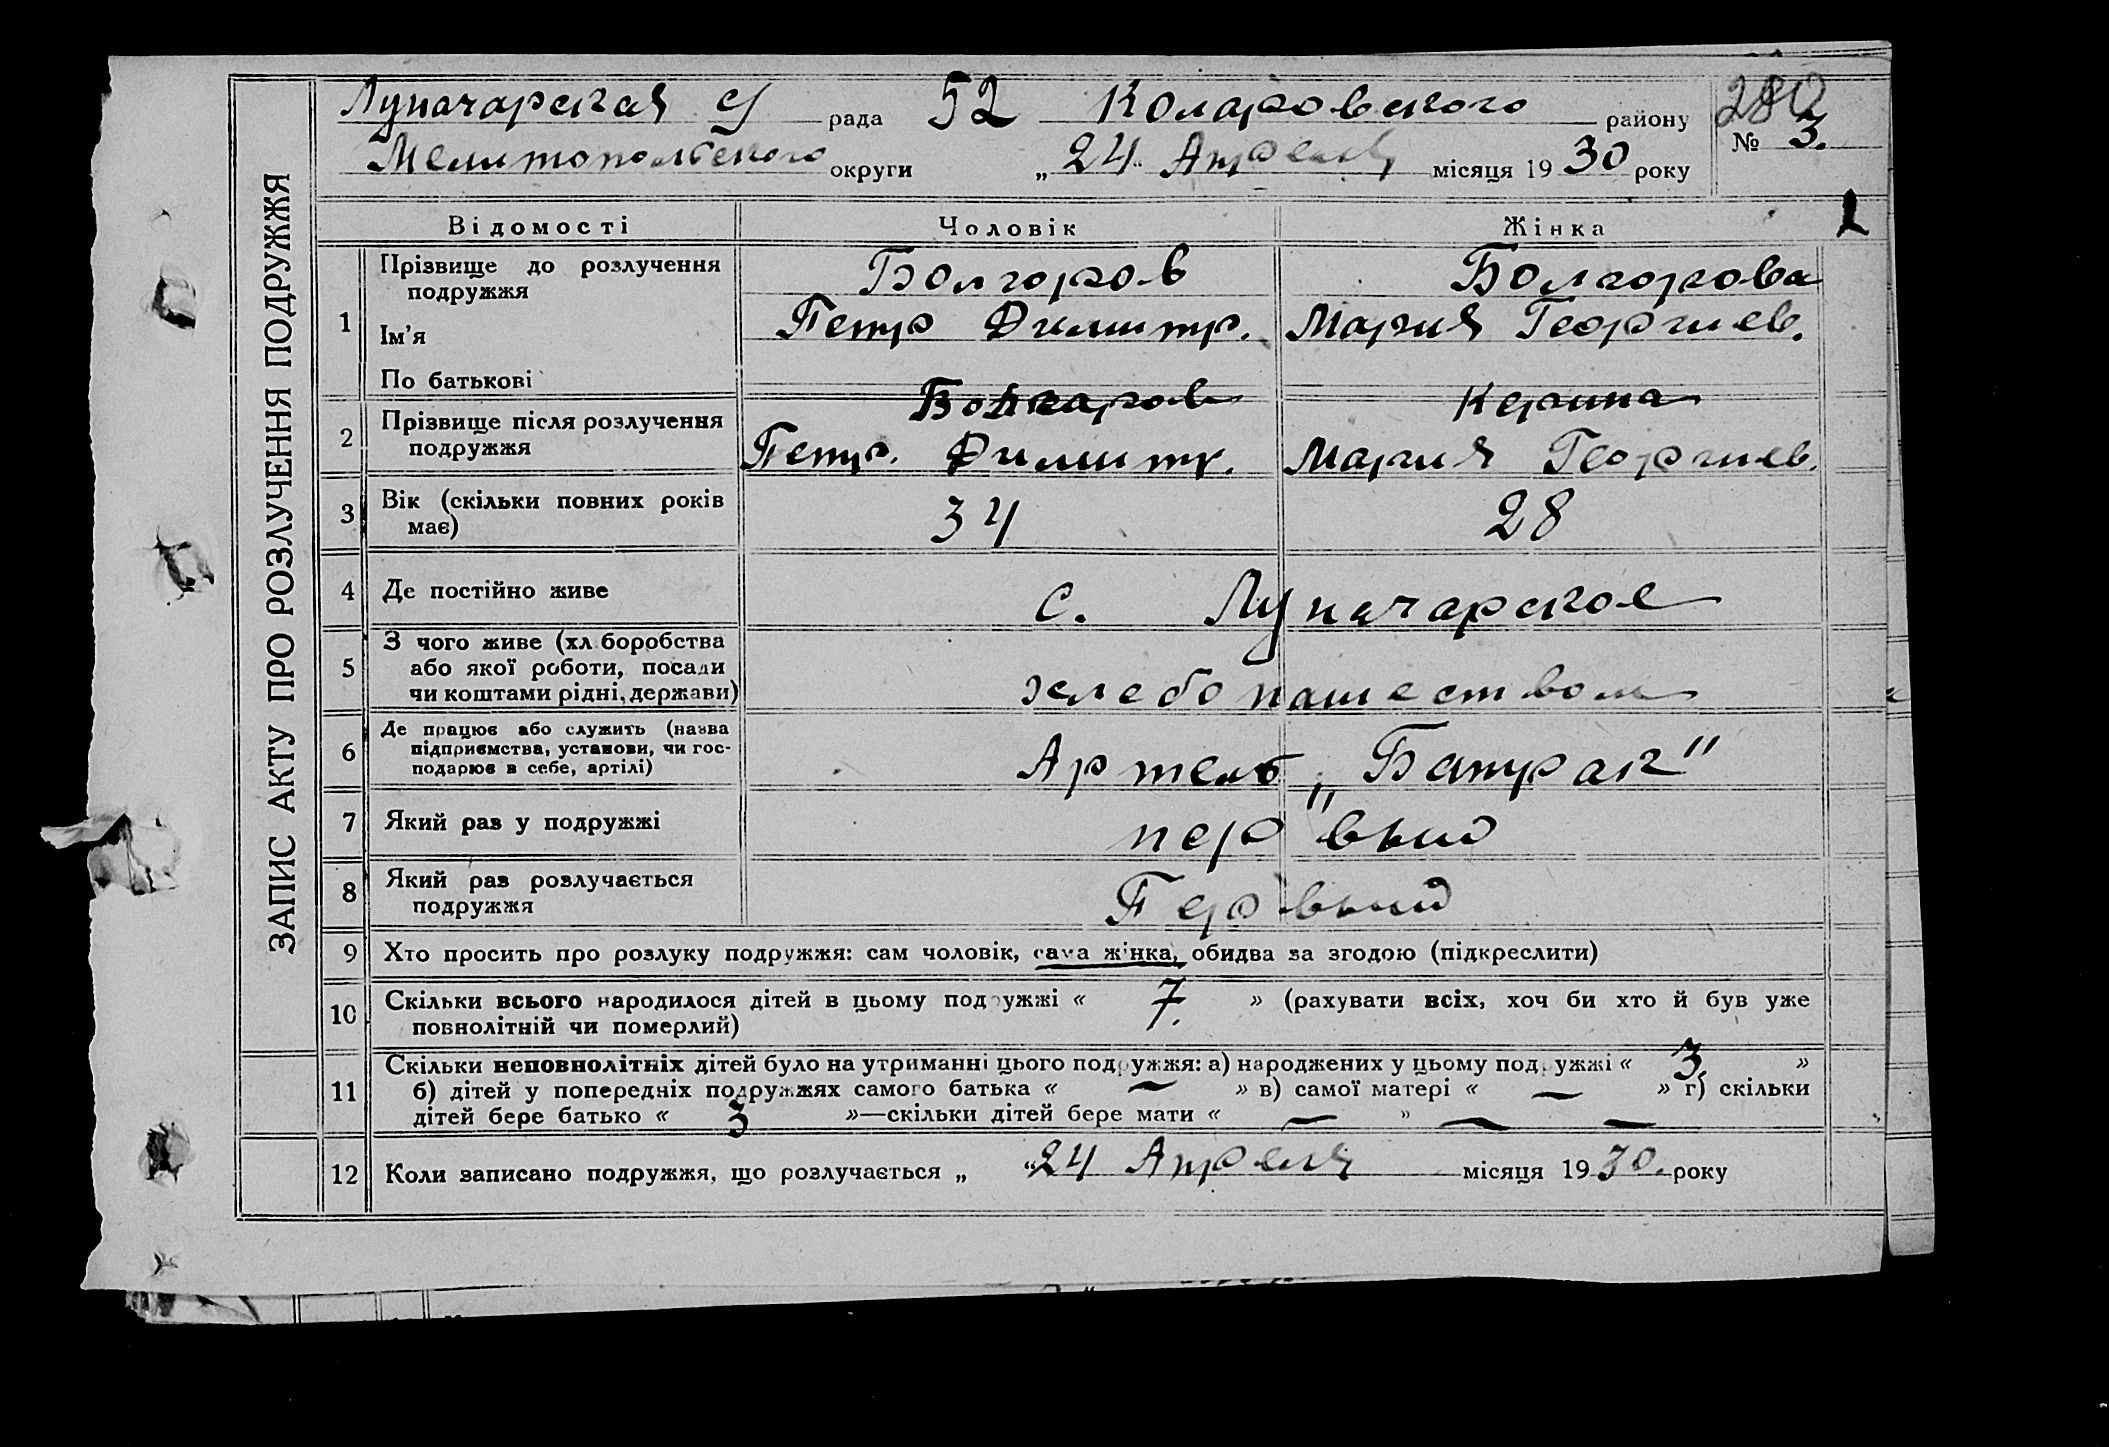 ЗАПИС АКТУ ПРО РОЗЛУЧЕННЯ ПОДРУЖЖЯ
Луначарская с/ рада 52 Коларовского району 280
Мелитопольского округи „24" Апреля місяця 1930 року № 3.
Відомості Чоловік Жінка
1 Прізвище до розлучення подружжя Болгоров Болгорова
Ім'я Петр Димитр. Мария Георгиев.
По батькові
2 Прізвище після розлучення подружжя Болгаров Кергина
Петр. Димитр. Мария Георгиев.
3 Вік (скільки повних років має) 34 28
4 Де постійно живе с. Луначарское
5 З чого живе (хл боробства
або якої роботи, посади
чи коштами рідні, держави) хлебопашеством
6 Де працює або служить (назва
підприємства, установи, чи гос-
подарює в себе, артілі) Артель „Батрак"
7 Який раз у подружжі первый
8 Який раз розлучається подружжя Первый
9 Хто просить про розлуку подружжя: сам чоловік, сама жінка, обидва за згодою (підкреслити)
10 Скільки всього народилося дітей в цьому подружжі « 7. » (рахувати всіх, хоч би хто й був уже
повнолітній чи померлий)
11 Скільки неповнолітніх дітей було на утриманні цього подружжя: а) народжених у цьому подружжі « 3 »
б) дітей у попередніх подружжях самого батька « — » в) самої матері « — » г) скільки
дітей бере батько « 3 »—скільки дітей бере мати « — » — —
12 Коли записано подружжя, що розлучається „ "24 Апреля місяця 1930. року